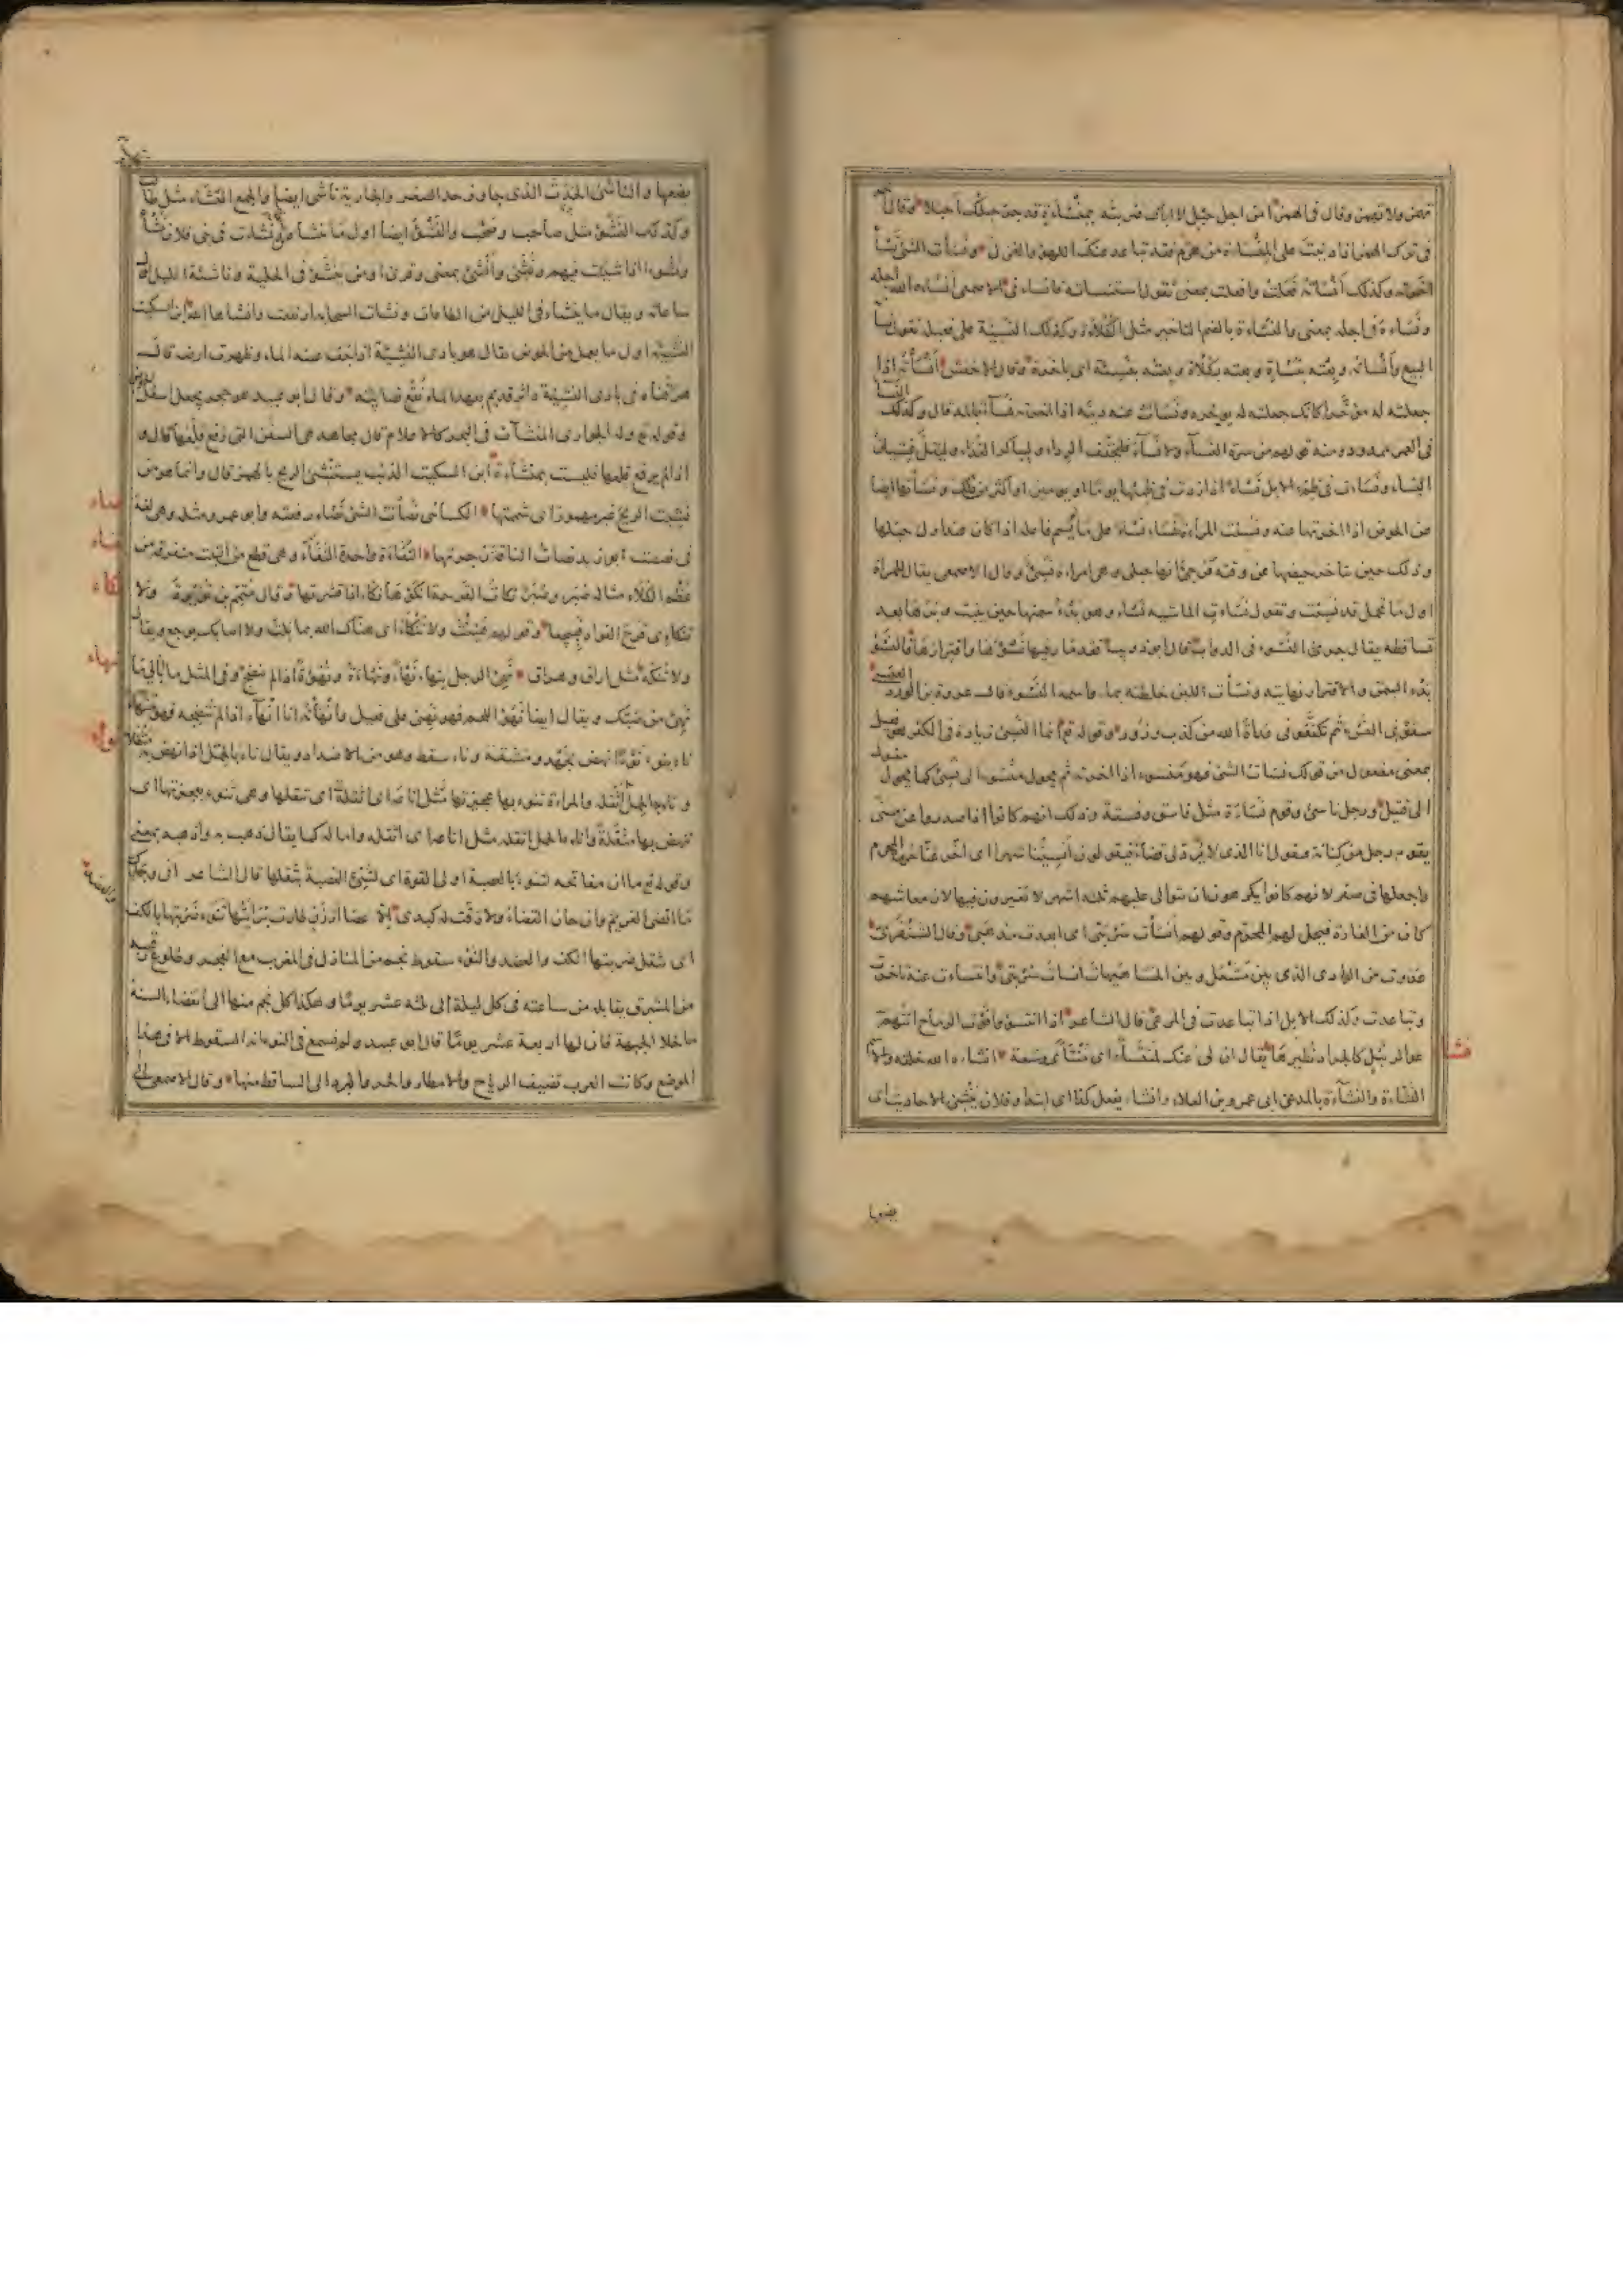 تهمز ولا تهمز وقال فى الهمز امن اجل حبل لا اباك ضربته بمنساءة قد جر حبلك احبلا وقال آخر
فى ترك الهمز اذا دببت على المنساة من هرم فقد تباعد عنك اللهو والغزل ونسأت الشئ نسأ
اخرته وكذلك انسأته فعلت وافعلت بمعنى تقول استنسأته فانساءنى الاصمعى انساء الله اجله
ونساءه فى اجله بمعنى والنساءة بالضم التاخير مثل الكلاءة وكذلك النسيئة على فعيلة تقول نسأته
البيع وأنسأته وبعته بنساءة وبعته بكلاءة وبعته بنسيئة اى باخرة وقال الاخفش أنسأته الدين اذا
جعلته له مؤخرا كانك جعلته له يوخره ونسأت عنه دينه اذا اخرته نسآء بالمد قال وكذلك النسآء
فى العمر ممدود ومنه قولهم من سره النسآء ولا نسآء فليخفف الرداء وليباكر الغداء وليقل غشيان
النساء ونسأت فى ظمء الابل نسأ اذا زدت فى ظمئها يوما او يومين او اكثر من ذلك ونسأتها ايضا
عن الحوض اذا اخرتها عنه ونسئت المرأة تنسأ نسأ على ما لم يسم فاعله اذا كان عند اول حبلها
وذلك حين يتاخر حيضها عن وقته فيرجى انها حبلى وهى امراءة نسئ وقال الاصمعى يقال للمراة
اول ما تحمل قد نسئت وتقول نسأت الماشية نسأ وهو بدء سمنها حين ينبت وبرها بعد
تساقطه يقال جرى النسء فى الدواب قال ابو ذويب
بدء السمن والاقترار نهايته ونسأت اللبن خلطته بماء واسمه النسء قال عروة بن الورد العبسى
سقونى النسء ثم تكنفونى عداة الله من كذب وزور وقوله تع انما النسئ زيادة فى الكفر هو فعيل
بمعنى مفعول من قولك نسأت الشئ فهو منسوء اذا اخرته ثم يحول منسوء الى نسئ كما يحول مقتول
الى قتيل ورجل ناسئ وقوم نسأة مثل فاسق وفسقة وذلك انهم كانوا اذا صدروا عن منى
يقوم رجل من كنانة فيقول انا الذى لا يرد لى قضاء فيقولون انسئنا شهرا اى اخر عنا حرمة المحرم
واجعلها فى صفر لانهم كانوا يكرهون ان تتوالى عليهم ثلثه اشهر لا يغيرون فيها لان معاشهم
كان من الغارة فيحل لهم المحرم وقولهم انسأت سربتى اى ابعدت مذهبى وقال الشنفرى
غدوت من الوادى الذى بين مشعل وبين الحشا هيهات انسأت سربتى وانتساءت عنه تاخرت
وتباعدت وكذلك الابل اذا تباعدت فى المرعى قال الشاعر اذا انتسؤا فوت الرماح اتتهم
عوائر نبل كالجراد نطيرها يقال ان لى عنك لمنتسأ اى منتأى وسعة انشاءه الله خلقه والاسم
نشا
النشاءة والنشآءة بالمد عن ابى عمرو بن العلاء وانشاء يفعل كذا اى ابتدا وفلان ينشئ الاحاديث اى
يضعها
يضعها والناشئ الحدث الذى جاوز حد الصغر والجارية ناشئ ايضا والجمع النشاء مثل طالب
وكذلك النشؤ مثل صاحب وصحب والنشؤ ايضا اول ما ينشأ من ونشأت فى بنى فلان نشأ
ونشوءا اذا شببت فيهم ونشئ وانشئ بمعنى وقرئ اومن ينشؤ فى الحلية وناشئة الليل اول
ساعاته ويقال ما ينشاء فى الليل من الطاعات ونشأت السحابة ارتفعت وانشاها الله ابن السكيت
النشيئة اول ما يعمل من الحوض يقال هو بادى النشيئة اذا جف عنه الماء وظهرت ارضه قال
هرقناه فى بادى النشيئة داثر قديم بعهد الماء بقع نصايبه وقال ابو عبيد هو حجر يجعل اسفل الحوض
وقوله تع وله الجوارى المنشآت فى البحر كالاعلام قال مجاهد هى السفن التى رفع قلعها قال و
اذا لم يرفع قلعها فليست بمنشاءة ابن السكيت الذئب يستنشئ الريح بالهمز قال وانما هو من
نشيت الريح غير مهموز اى شممتها الكسائى نصأت الشئ نصاء رفعته وابو عمرو مثله وهى لغة
نصاء
فى نصصت ابو زيد نصات الناقة زجرتها النفاءة واحدة النفآء وهى قطع من النبت متفرقة من
نفاء
عظم الكلاء مثاله صبر وصبر نكأت القرحة انكؤها نكأ اذا قشرتها قال متمم بن نويرة ولا
نكاء
تنكئى قرح الفواد فييجعا وقولهم هنئت ولا تنكأ اى هناك الله بما نلت ولا اصابك بوجع ويقال
ولا تنكه مثل اراق وهراق نهئ الرجل ينهاء نهأ ونهاءة ونهوءة اذا لم ينضج وفى المثل ما ابالى ما
نهاء
نهئ من ضبك ويقال ايضا نهؤ اللحم فهو نهئ على فعيل وانهأته انا انهاء اذا لم تنضجه فهو منهأ
ناء ينوء نوءا نهض بجهد ومشقة وناء سقط وهو من الاضداد ويقال ناء بالحمل اذا نهض به مثقلا
نواء
وناء به الحمل اثقله والمراة تنوء بها عجيزتها اى تثقلها وهى تنوء بعجيزتها اى
تنهض بها مثقلة وانآءه الحمل اثقله مثل اناعه اى اثقله واماله كما يقال ذهب به واذهبه بمعنى
وقوله تع ما ان مفاتحه لتنوء بالعصبة اولى القوة اى لتنئ العصبة بثقلها قال الشاعر انى وجدك
ما اقضى الغريم وان حان القضاء ولا رقت له كبدى الا عصا ارزن طارت برايتها تنوء ضربتها بالكف
والعضد
اى تثقل ضربتها الكف والعضد والنوء سقوط نجم من المنازل فى المغرب مع الفجر وطلوع رقيبه
من المشرق يقابله من ساعته فى كل ليلة الى ثلثه عشر يوما وهكذا كل نجم منها الى انقضاء السنة
ما خلا الجبهة فان لها اربعة عشر يوما قال ابو عبيد ولم نسمع فى النوء انه السقوط الا فى هذا
الموضع وكانت العرب تضيف الرياح والامطار والحر والبرد الى الساقط منها وقال الاصمعى الى